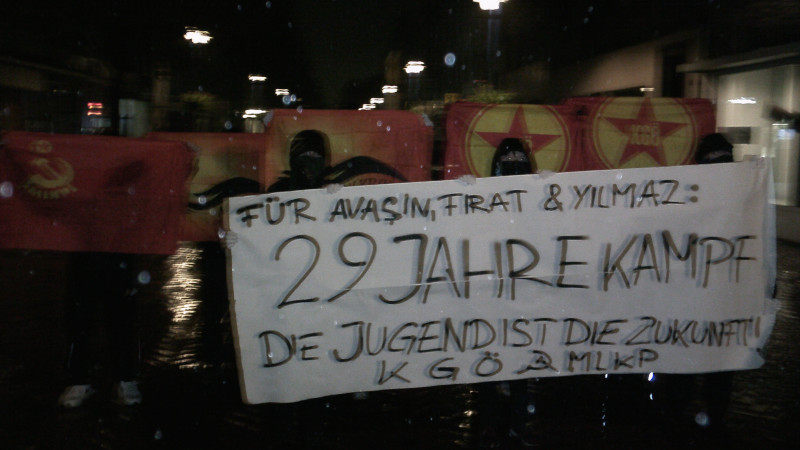 FÜR AVAŞİN, FIRAT & YILMAZ:
29 JAHRE KAMPF
DIE JUGEND IST DIE ZUKUNFT!
KGÖ MLKP
KGÖ